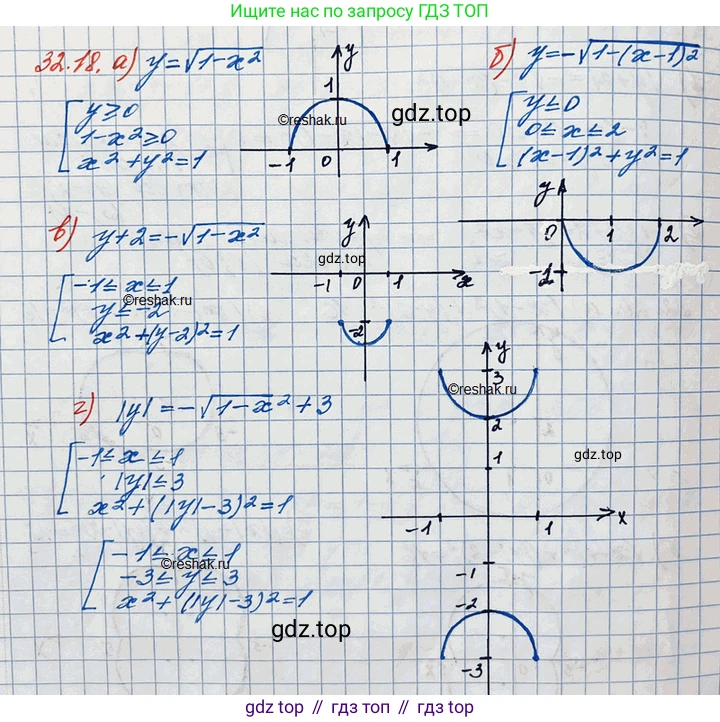 Ищите нас по запросу ГДЗ ТОП
32.18. а) y=√1-x²
y≥0
1-x²≥0
x²+y²=1
y
1
-1 0 1
©reshak.ru
gdz.top
б) y=-√1-(x-1)²
y≤0
0≤x≤2
(x-1)²+y²=1
y
0 1 2
-1
в) y+2=-√1-x²
-1≤x≤1
y≤-2
x²+(y-2)²=1
©reshak.ru
y
gdz.top
-1 0 1 x
-2
г) |y|=-√1-x²+3
-1≤x≤1
|y|≤3
x²+(|y|-3)²=1
-1≤x≤1
-3≤y≤3
x²+(|y|-3)²=1
©reshak.ru
gdz.top
y
3
©reshak.ru
2
1
gdz.top
-1 1 x
-1
-2
-3
gdz.top // гдз топ // gdz.top